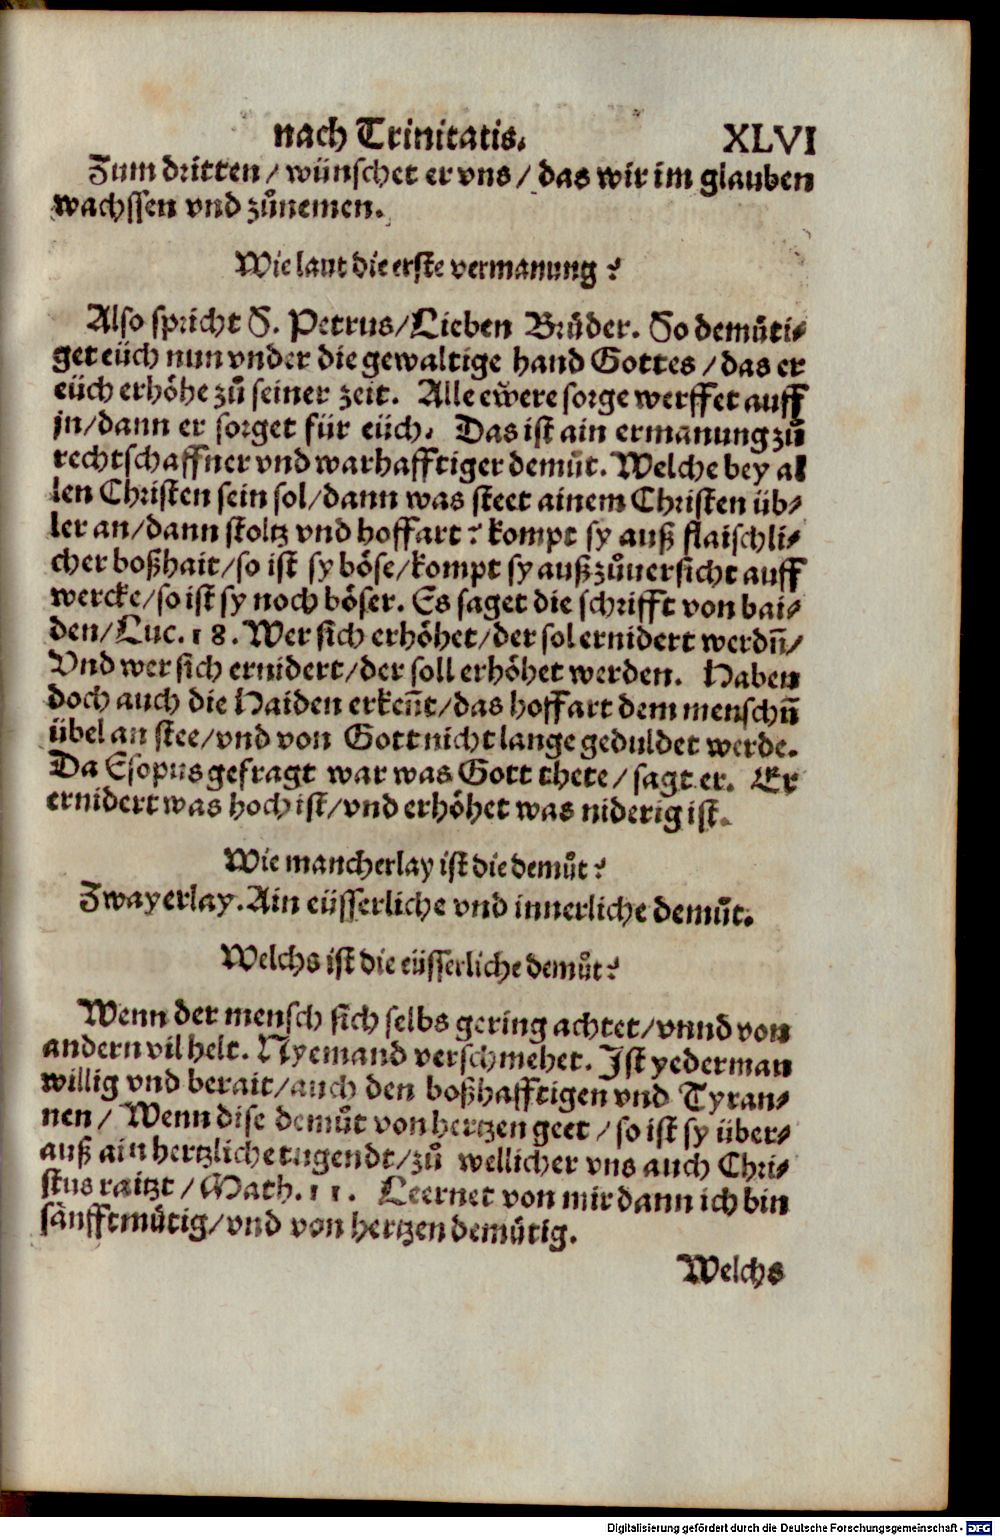 nach Trinitatis. XLVI
Zum dritten / wünschet er vns / das wir im glauben
wachssen vnd zůnemen.
Wie laut die erste vermanung?
Also spricht S. Petrus / Lieben Brůder. So demůti-
get eüch nun vnder die gewaltige hand Gottes / das er
eüch erhöhe zů seiner zeit. Alle ewere sorge werffet auff
jn / dann er sorget für eüch. Das ist ain ermanung zů
rechtschaffner vnd warhafftiger demůt. Welche bey al
len Christen sein sol / dann was steet ainem Christen üb-
ler an / dann stoltz vnd hoffart? kompt sy auß flaischli-
cher boßhait / so ist sy böse / kompt sy auß zůuersicht auff
wercke / so ist sy noch böser. Es saget die schrifft von bai-
den / Luc. 18. Wer sich erhöhet / der sol ernidert werdn̄ /
Vnd wer sich ernidert / der soll erhöhet werden. Haben
doch auch die Haiden erken̄t / das hoffart dem menschn̄
übel an stee / vnd von Gott nicht lange geduldet werde.
Da Esopus gefragt war was Gott thete / sagt er. Er
ernidert was hoch ist / vnd erhöhet was niderig ist.
Wie mancherlay ist die demůt?
Zwayerlay. Ain eüsserliche vnd innerliche demůt.
Welchs ist die eüsserliche demůt?
Wenn der mensch sich selbs gering achtet / vnnd von
andern vil helt. Nyemand verschmehet. Ist yederman
willig vnd berait / auch den boßhafftigen vnd Tyran-
nen / Wenn dise demůt von hertzen geet / so ist sy über-
auß ain hertzliche tugendt / zů wellicher vns auch Chri-
stus raitzt / Math. 11. Leernet von mir dann ich bin
sänfftmůtig / vnd von hertzen demůtig.
Welchs
Digitalisierung gefördert durch die Deutsche Forschungsgemeinschaft - DFG